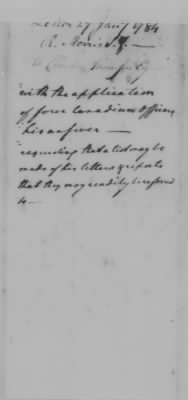 Letter 27 Jany 1784
R. Morris
to Charles Thomson Esq
with the application
of four Canadian Officers
his answer —
requesting that a list may be
made of his letters & reports
that they may readily be referred
to —